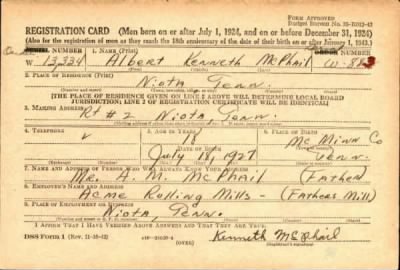 FORM APPROVED
REGISTRATION CARD (Men born on or after July 1, 1924, and on or before December 31, 1924)
(Also for the registration of men as they reach the 18th anniversary of the date of their birth on or after January 1, 1943.)
NUMBER 1. NAME (Print) NUMBER
W 13,334 Albert Kenneth McPhail W-883
2. PLACE OF RESIDENCE (Print)
Niota Tenn.
[THE PLACE OF RESIDENCE GIVEN ON LINE 2 ABOVE WILL DETERMINE LOCAL BOARD
JURISDICTION; LINE 2 OF REGISTRATION CERTIFICATE WILL BE IDENTICAL]
3. MAILING ADDRESS
Rt #2 Niota, Tenn.
4. TELEPHONE 5. AGE IN YEARS 6. PLACE OF BIRTH
18 Mc Minn Co
DATE OF BIRTH
July 18, 1927 Tenn.
7. NAME AND ADDRESS OF PERSON WHO WILL ALWAYS KNOW YOUR ADDRESS
Mr. A. M. McPhail (Father)
8. EMPLOYER'S NAME AND ADDRESS
Acme Rolling Mills - (Fathers Mill)
9. PLACE OF EMPLOYMENT OR BUSINESS
Niota, Tenn.
I AFFIRM THAT I HAVE VERIFIED ABOVE ANSWERS AND THAT THEY ARE TRUE.
DSS Form 1 (OVER) Kenneth McPhail